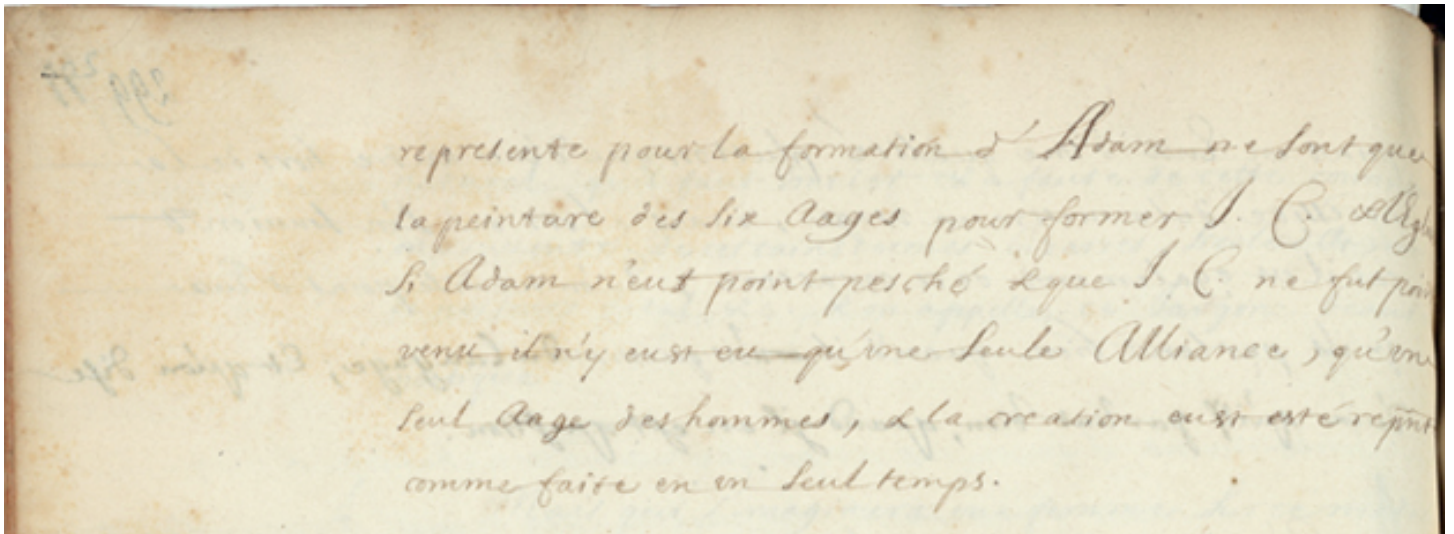 represente pour la formation d'Adam ne sont que
la peinture des six Aages pour former J. C. & l'Egl
si Adam n'eut point pesché & que J. C. ne fut poin
venu il n'y eust eu qu'vne seule Alliance, qu'vne
seul Aage des hommes, & la creation eust esté repñt
comme faite en vn seul temps.